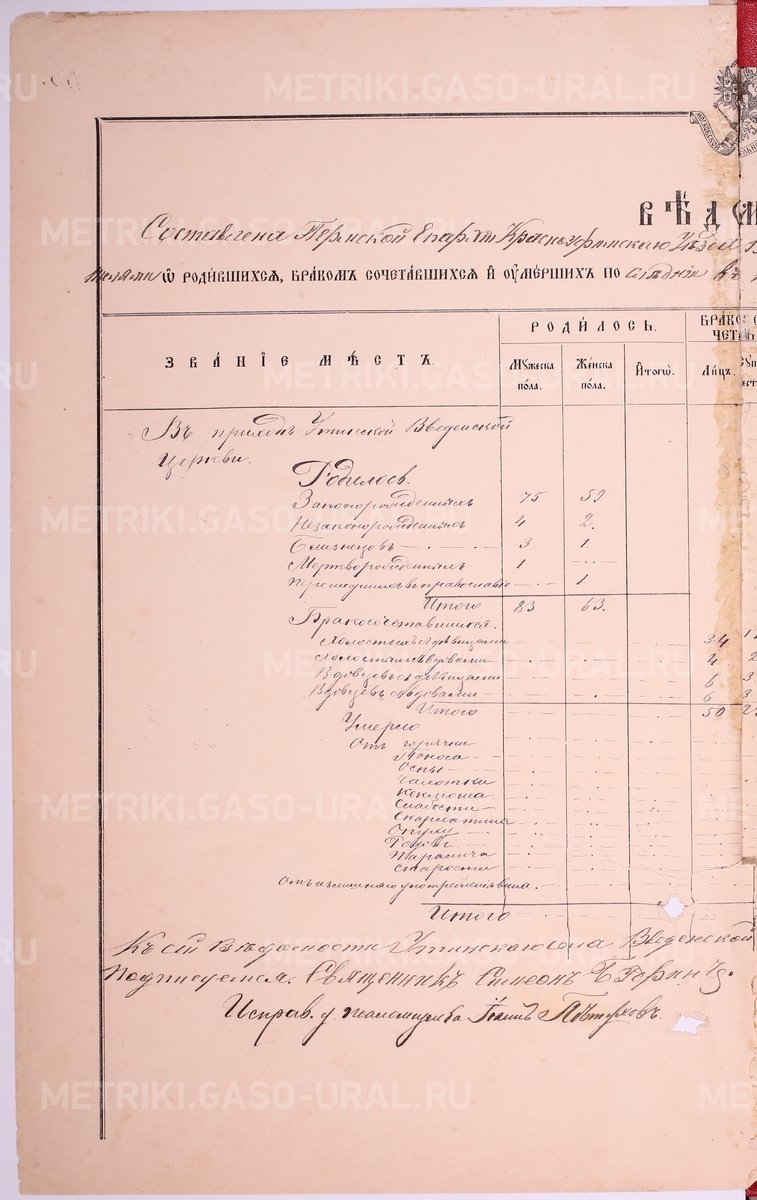 METRIKI.GASO-URAL.RU
МОСКОВСКОЙ
ВѢДОМ
Составлена Пермской Епархіи Красноуфимскаго Уѣзда
телями Ѡ РОДИВШИХСЯ, БРАКОМЪ СОЧЕТАВШИХСЯ И ОУМЕРШИХЪ ПО
ЗВАНІЕ МѢСТЪ.
РОДИЛОСЬ.
МУЖЕСКА ПОЛА.
ЖЕНСКА ПОЛА.
ИТОГѠ.
ЛИЦЪ.
Въ приходѣ Уткинской Введенской
Церкви.
Родилось.
Законорожденныхъ 75 59
Незаконорожденныхъ 4 2.
Близнецовъ 3 1.
Мертворожденныхъ 1
перешедшихъ въ православіе 1
Итого 83 63.
Бракосочетавшихся.
Холостыхъ съ дѣвицами 34
Холостыхъ съ вдовами 4 2
Вдовцевъ съ дѣвицами 6 3
Вдовцевъ съ вдовами 6 3
Итого 50
Умерло
Отъ горячки
Поноса
Оспы
Чахотки
Коклюша
Слабости
Скарлатины
Родовъ
Паралича
Старости
отъ излишняго употребленія вина.
Итого
Къ сей Вѣдомости Уткинскаго села Введенской
Подписуемся. Священникъ Симеонъ
Исправ. д. псаломщика Іоаннъ Пѣтуховъ.